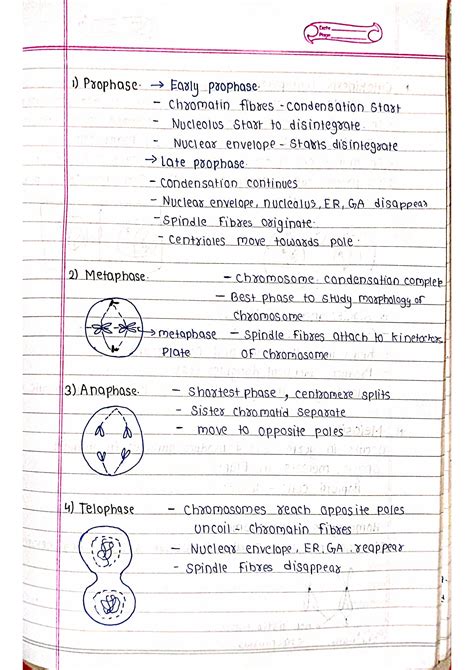 Date
Page
1) Prophase. → Early prophase.
- Chromatin fibres - Condensation Start
- Nucleolus Start to disintegrate.
- Nuclear envelope - Starts disintegrate
→ late prophase.
- Condensation continues
- Nuclear envelope, nucleolus, ER, GA disappear
- Spindle Fibres originate.
- Centrioles move towards pole.
2) Metaphase. - Chromosome condensation complete
- Best phase to study morphology of
chromosome
→ metaphase - Spindle Fibres attach to kinetochore
Plate of chromosome.
3) Anaphase. - Shortest phase, centromere splits
- Sister chromatid separate
- move to opposite poles
4) Telophase - Chromosomes reach opposite poles
uncoil - chromatin fibres
- Nuclear envelope, ER, GA reappear
- Spindle Fibres disappear